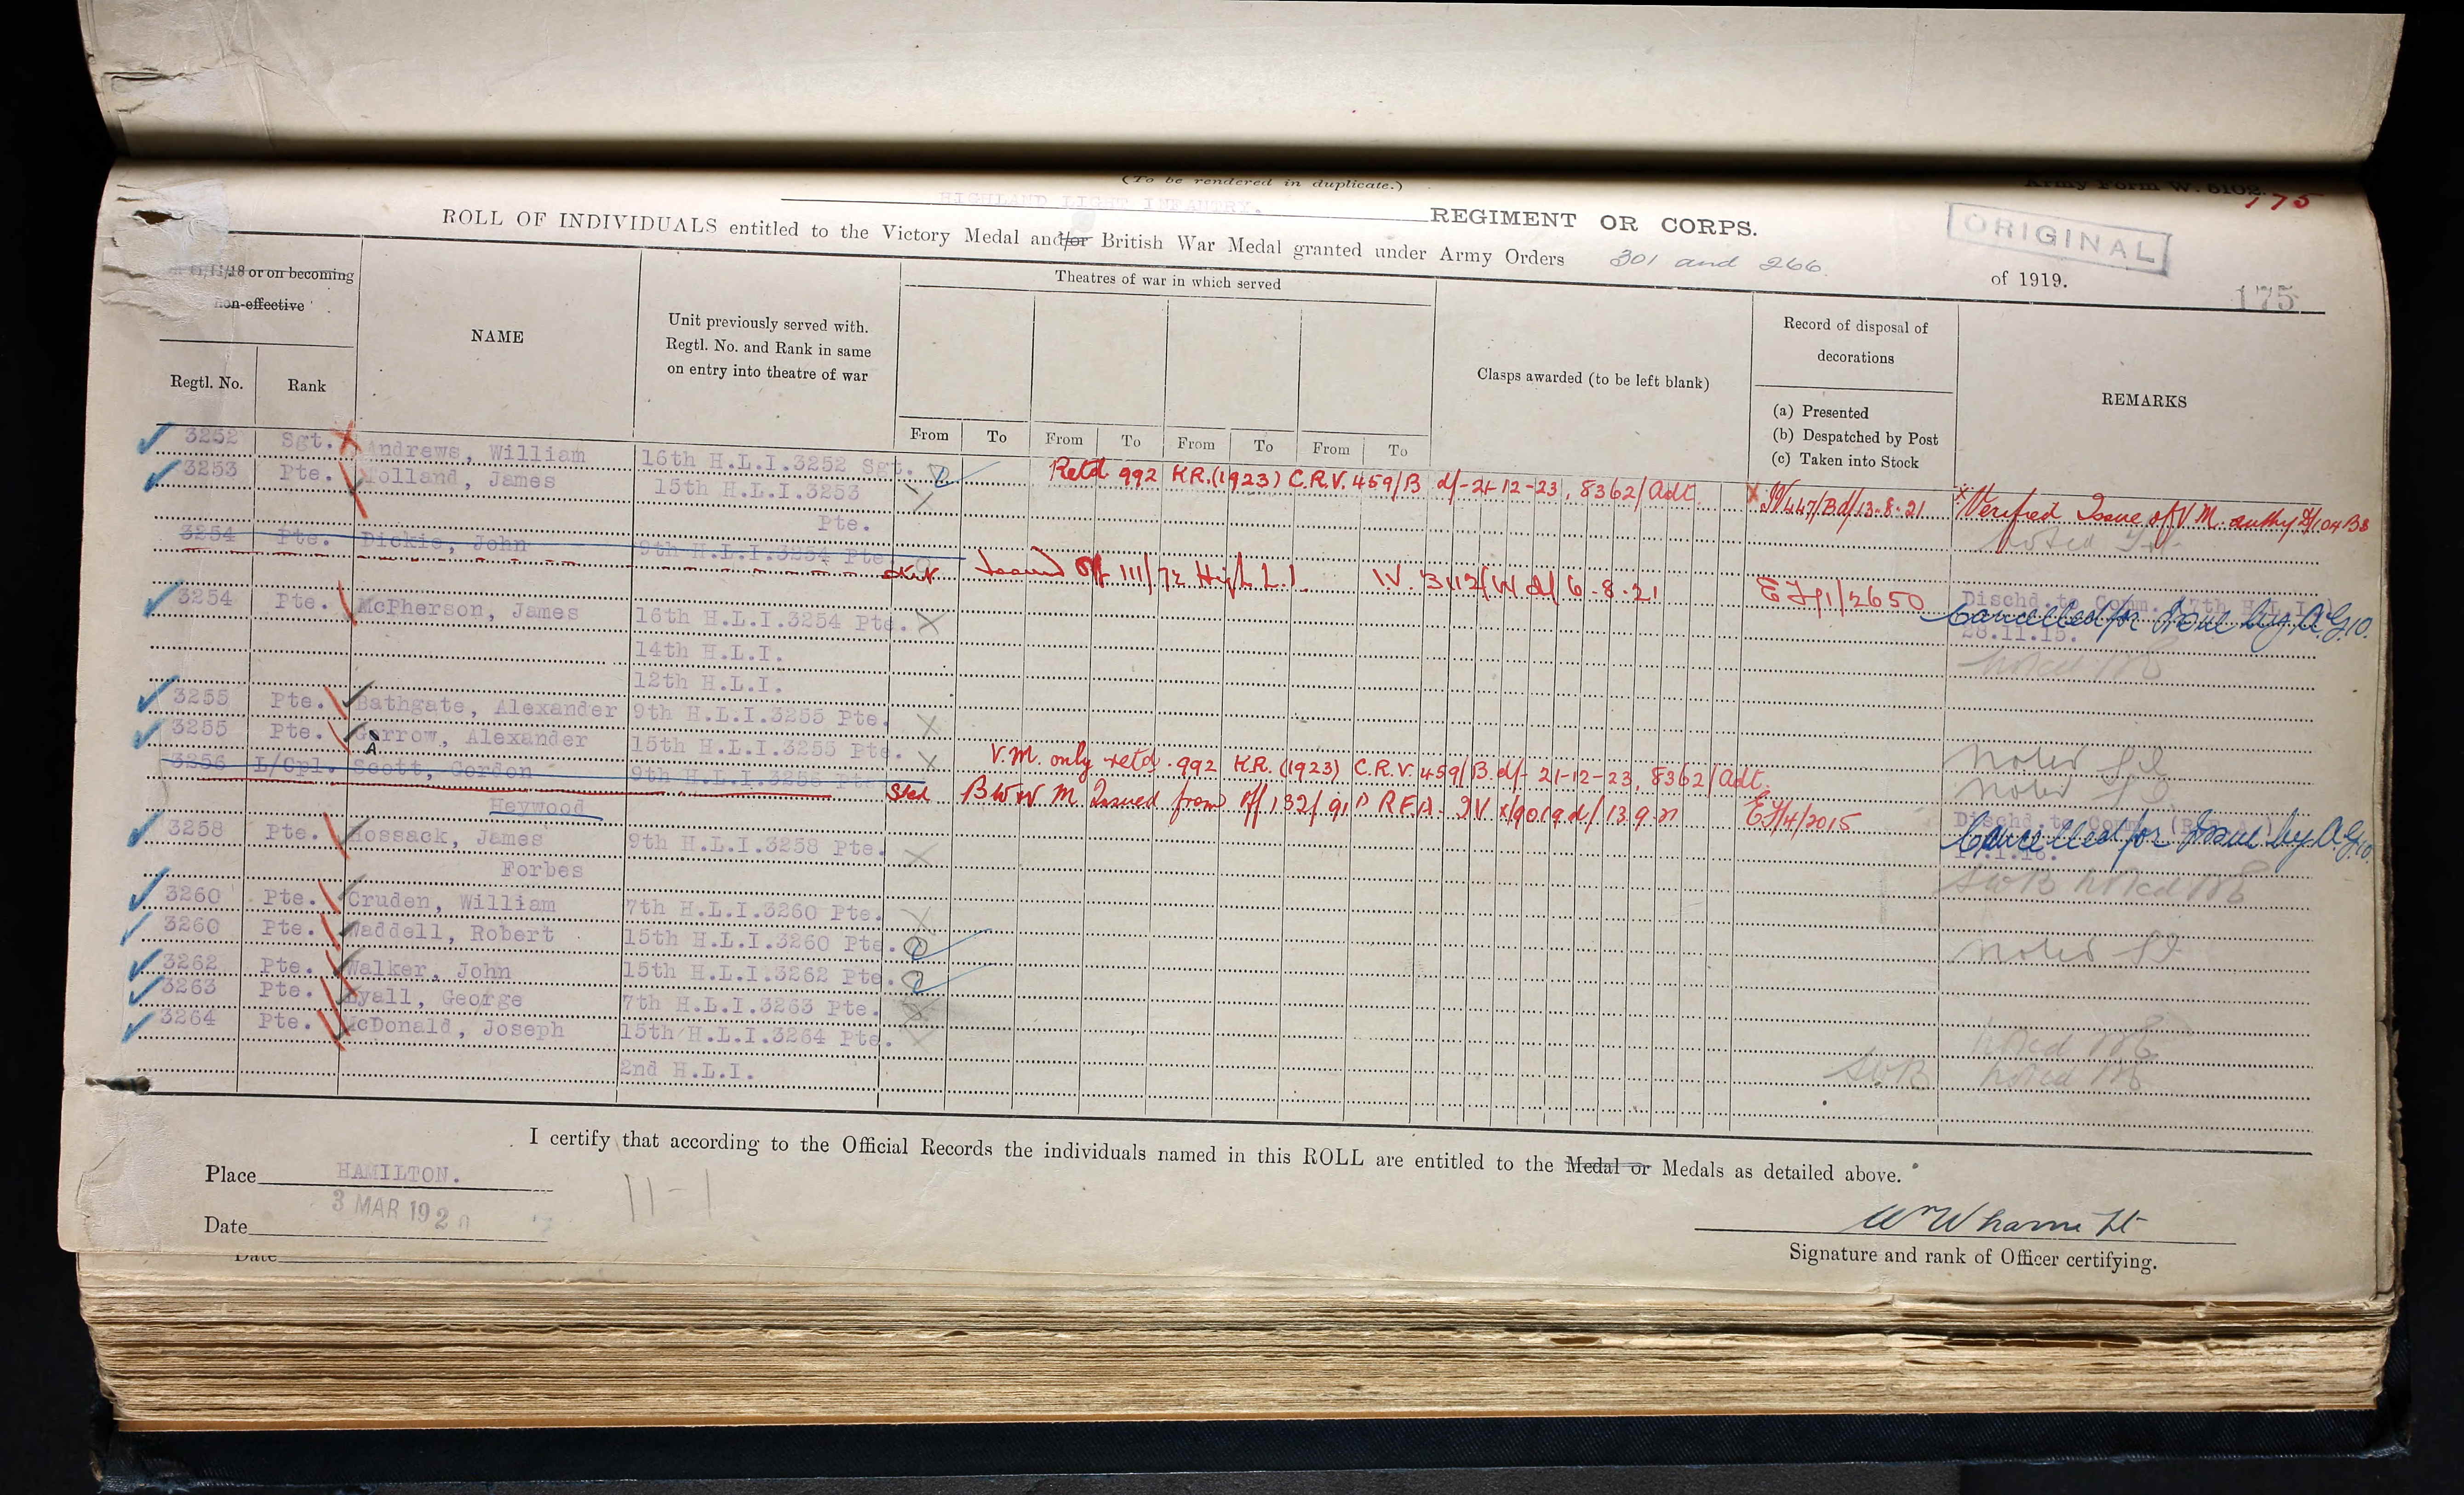 (To be rendered in duplicate.)
Army Form W. 5102.
175
HIGHLAND LIGHT INFANTRY. REGIMENT OR CORPS.
ORIGINAL
ROLL OF INDIVIDUALS entitled to the Victory Medal and/or British War Medal granted under Army Orders 301 and 266 of 1919.
175
11/11/18 or on becoming
non-effective
Regtl. No.
Rank
NAME
Unit previously served with.
Regtl. No. and Rank in same
on entry into theatre of war
Theatres of war in which served
From To From To From To From To
Clasps awarded (to be left blank)
Record of disposal of
decorations
(a) Presented
(b) Despatched by Post
(c) Taken into Stock
REMARKS
3252 Sgt. Andrews, William 16th H.L.I.3252 Sgt.
Retd 992 KR.(1923) C.R.V. 459/B d/- 21-12-23, 8362/Adt.
3253 Pte. Holland, James 15th H.L.I.3253
Pte.
IV/447/B d/13-8-21 Verified Issue of V.M. authy
3254 Pte. Dickie, John 9th H.L.I.3254 Pte.
Issued Off 111/72 High L.I. IV. 3112/W d/ 6-8-21
Dischd.to Comm. (7th H.L.I.)
28.11.15.
Cancelled for Issue by A.G.10.
3254 Pte. McPherson, James 16th H.L.I.3254 Pte.
14th H.L.I.
12th H.L.I.
noted
3255 Pte. Bathgate, Alexander 9th H.L.I.3255 Pte.
Noted
3255 Pte. Garrow, Alexander 15th H.L.I.3255 Pte.
V.M. only retd. 992 K.R. (1923) C.R.V. 459/B. d/- 21-12-23, 8362/Adt.
Noted
3256 L/Cpl. Scott, Gordon 9th H.L.I.3256 Pte.
Heywood
B W W M Issued from Off 132/91 D RFA. IV x/9019 d/ 13.9.21
EJ/4/2015
Dischd.to Comm.
Cancelled for Issue by A.G.10.
3258 Pte. Hossack, James 9th H.L.I.3258 Pte.
Forbes
SWB noted
3260 Pte. Cruden, William 7th H.L.I.3260 Pte.
3260 Pte. Waddell, Robert 15th H.L.I.3260 Pte.
Noted
3262 Pte. Walker, John 15th H.L.I.3262 Pte.
3263 Pte. Lyall, George 7th H.L.I.3263 Pte.
noted
3264 Pte. McDonald, Joseph 15th H.L.I.3264 Pte.
2nd H.L.I.
SWB noted
I certify that according to the Official Records the individuals named in this ROLL are entitled to the Medal or Medals as detailed above.
Place HAMILTON.
Date 3 MAR 1920
11-1
Wm Wharrie Lt
Signature and rank of Officer certifying.
Date